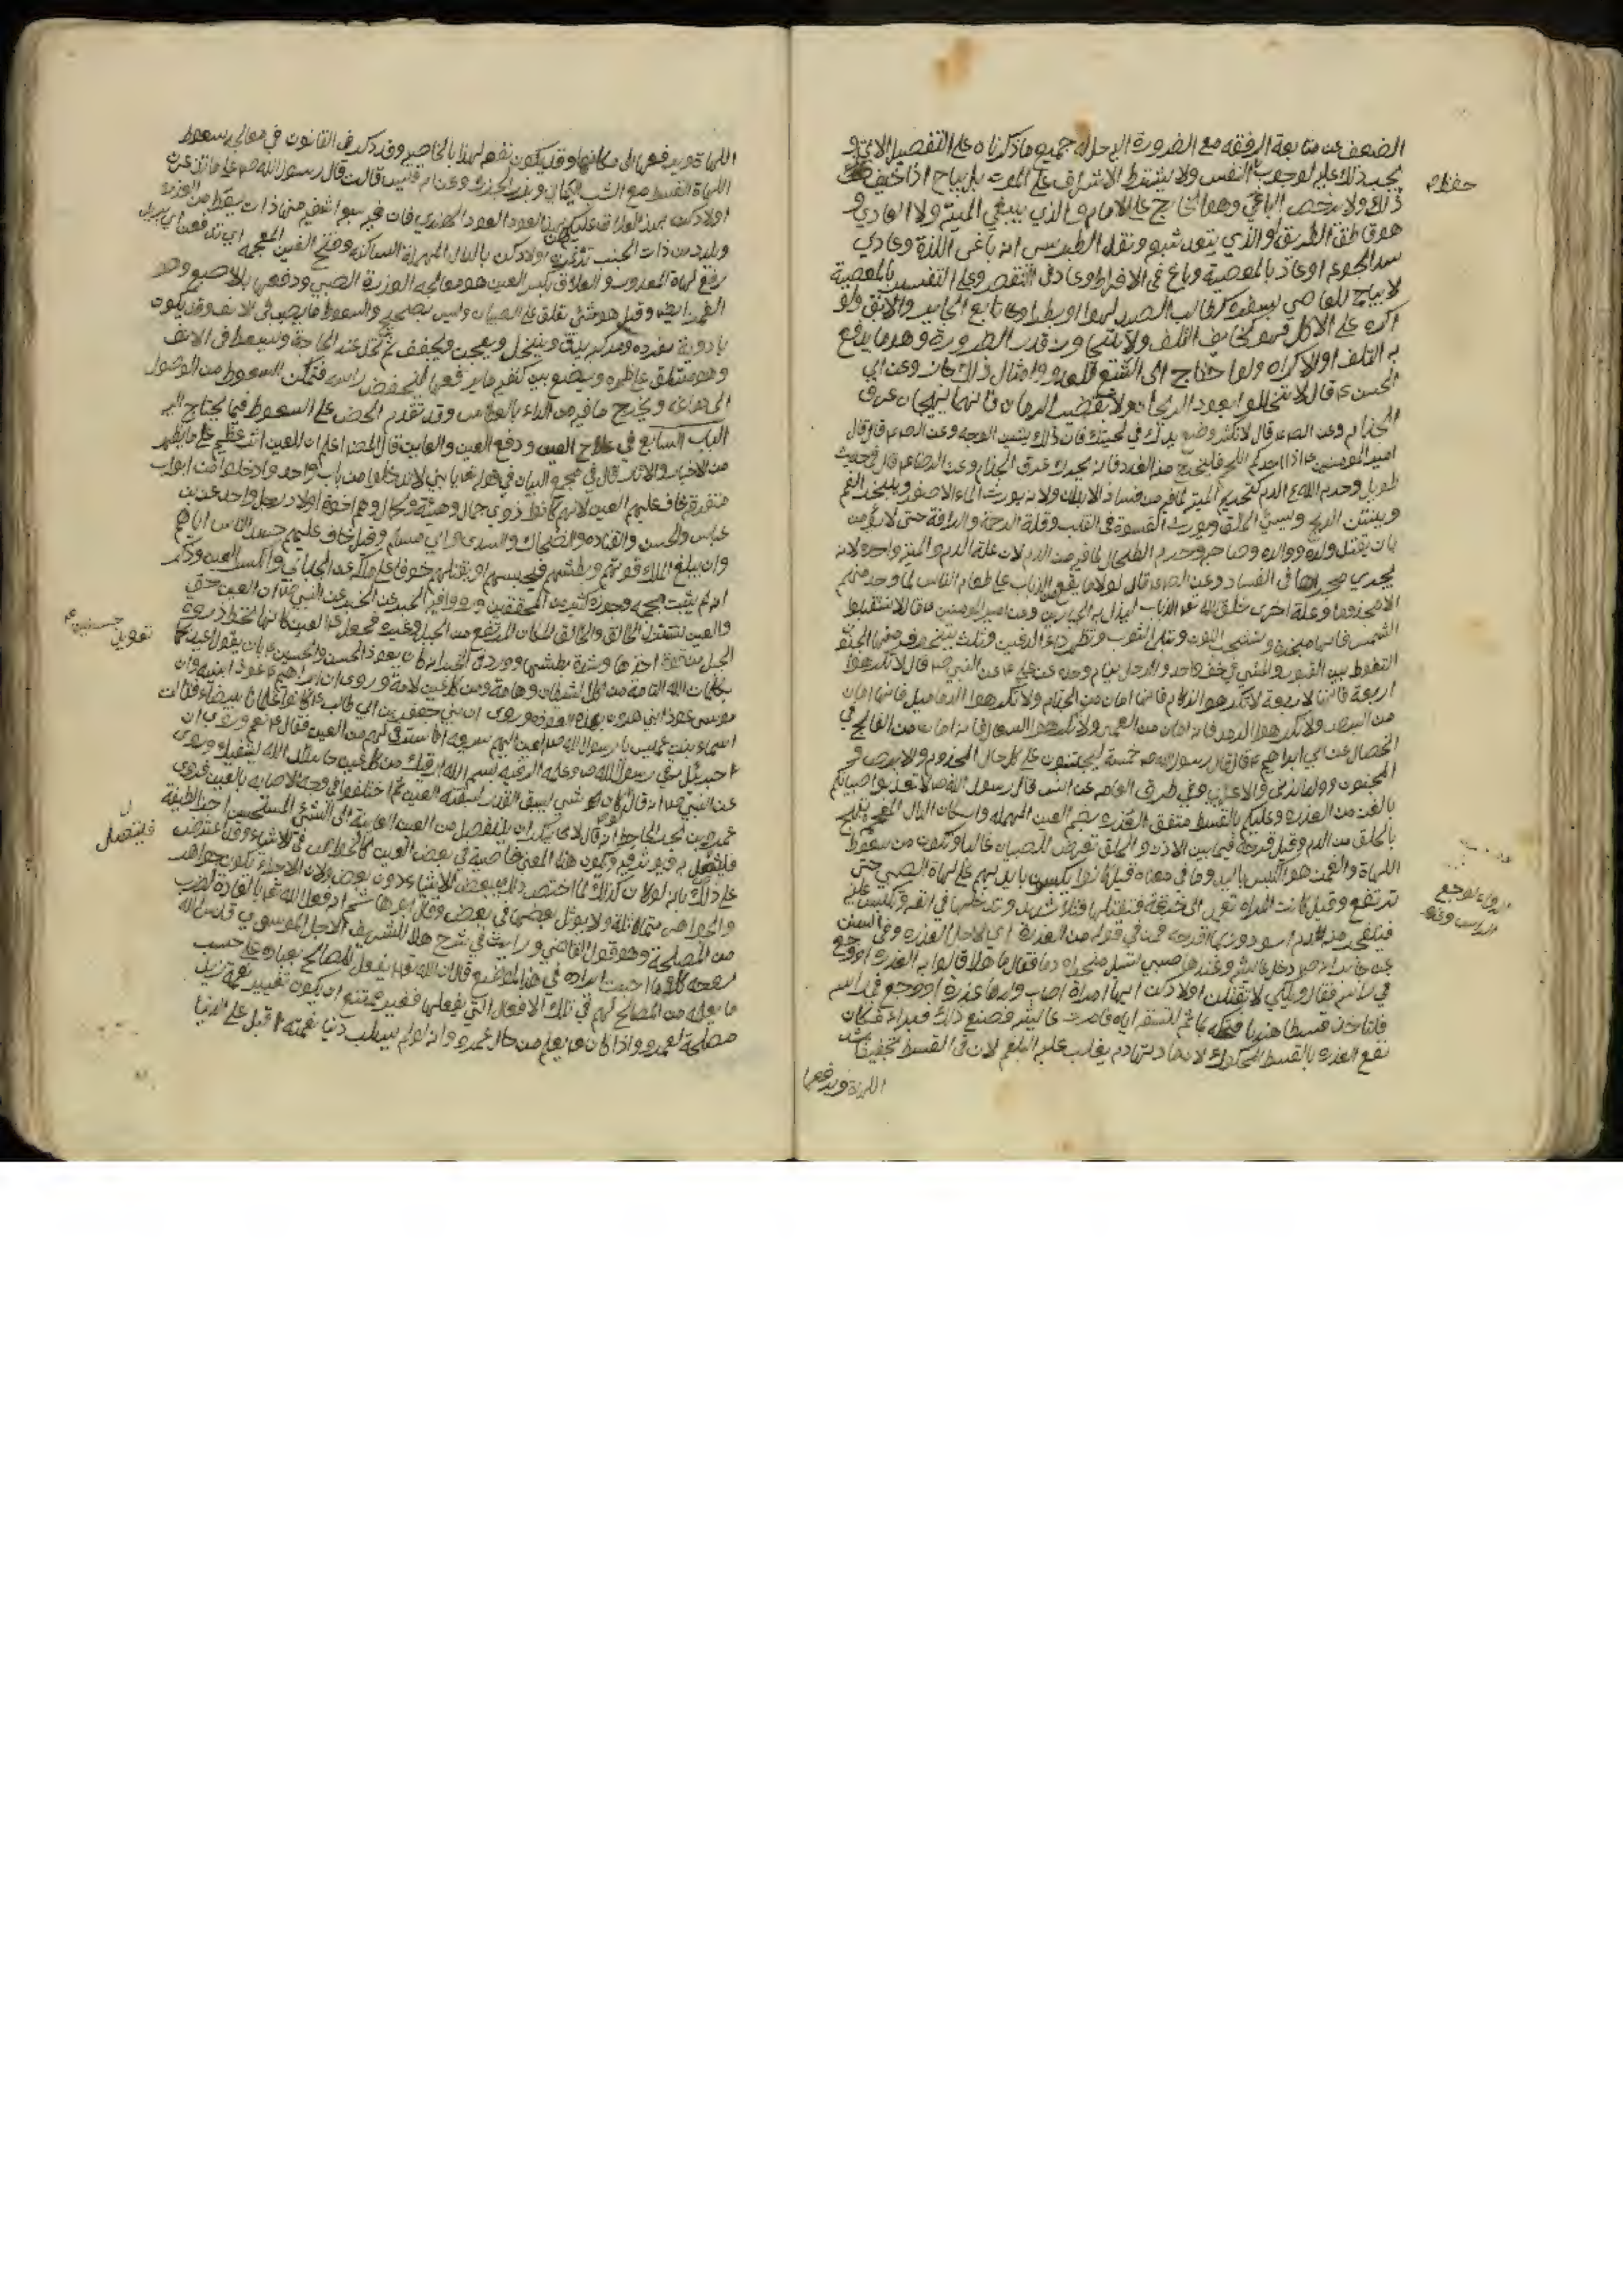 الضعف عن متابعة الرفقه مع الضرورة اليه حل له جميع ما ذكرناه على التفصيل الاتي و
يجب ذلك عليه لوجوب النفس ولا يشترط الاشراف على الموت بل يباح اذا خيف
حفظ
ذلك ولا يرخص الباغي وهو الخارج على الامام والذي يبغي الميتة ولا العادي و
هو قاطع الطريق والذي يعدو شبعه ونقل الطبرسي انه باغي اللذة وعادي
سد الجوع او عاد بالمعصية وباغ في الافراط وعاد في التقصير وعلى التفسير بالمعصية
لا يباح للعاصي بسفره كطالب الصيد لهوا او بطرا و تابع الجاير والابق ولو
اكره على الاكل فهو كخايف التلف ولا يتجاوز قدر الضرورة وهو ما يدفع
به التلف او الاكراه ولو احتاج الى الشبع للعدو وامثال ذلك جاز وعن ابي
الحسن ع قال لا تخللوا بعود الريحان ولا بقضيب الرمان فانهما يهيجان عرق
الجذام وعن الص ع قال لا تكثر وضع يدك في لحيتك فان ذلك يشين الوجه وعن الص ع قال قال
امير المومنين ع اذا احدكم
طويل وحرم الله ع الدم كتحريم الميتة لما فيه من فساد الابدان ولانه يورث الماء الاصفر ويبخر الفم
وينتن الريح ويسيئ الخلق ويورث القسوة في القلب وقلة الرحمة والرافة حتى لا يؤمن
بان يقتل ولده ووالده وصاحبه وحرم الطحال لما فيه من الدم لان علة الدم والميتة واحدة لانه
يجري مجراها في الفساد وعن الص ع قال لولا ما يقع الذباب على طعام الناس لما وجد منهم
الا مجذوما وعلة اخرى خلق الله عز الذباب ليذل به الجبارين وعن امير المومنين ع قال لا تستقبلوا
الشمس فانها مبخرة وتشحب اللون وتبلي الثوب وتظهر الداء الدفين وثلث يتخوف منها الجنون
التغوط بين القبور والمشي في خف واحد والرجل ينام وحده عن علي ع عن النبي ص قال لا تكرهوا
اربعة فانها لاربعة لا تكرهوا الزكام فانه امان من الجذام ولا تكرهوا الدماميل فانها امان
من البرص ولا تكرهوا الرمد فانه امان من العمى ولا تكرهوا السعال فانه امان من الفالج في
الخصال عن ابي ابراهيم ع قال قال رسول الله ص خمسة يجتنبون على كل حال المجذوم والابرص و
المجنون وولد الزنى والاعرابي وفي طرق العامه عن انس قال رسول الله ص لا تعذبوا صبيانكم
بالغمز من العذرة وعليكم بالقسط متفق العذره بضم العين المهمله واسكان الذال المعجمه
بالحلق من الدم وقيل قرحة فيما بين الاذن والحلق تعرض للصبيان غالبا وتكون من سقوط
اللهاة والغمز هو الكبس باليد وما في معناه قيل كانوا يكبسون بايديهم على لهاة الصبي حتى
ترتفع وقيل كانت المراه تعمد الى خرقة فتفتلها فتلا شديد وتدخلها في انفه
فينفجر منه الدم اسود وربما اقرحه
عن جابر انه ص دخل عايشه وعندها صبي يسيل منخراه دما فقال ما هذا قالوا به العذره او وجع
في راسه فقال ويلكن لا تقتلن اولادكن ايما امراة اصاب ولدها عذرة او وجع في راسه
فلتاخذ قسطا هنديا فتحكه بماء ثم لتسعطه اياه فامرت عايشه فصنع ذلك فبراء
نفع العذره بالقسط المحكوك لان مادتها دم يغلب عليه البلغم لان في القسط تجفيفا يشد
اللهاة ويدفعها
الدواء لوجع
الراس
اللهاة ويدفعها الى مكانها وقد يكون نفعه لهذا بالخاصيه وقد ذكر في القانون في معالجه سقوط
اللهاة القسط مع الشب اليماني وبزر وعن ام قيس قالت قال رسول الله ص على ما تدغرن
اولادكن بهذا العلاق عليكن بهذا العود الهندي فان فيه سبع اشفيه منها ذات يسقط من العذره
ويلد من ذات الجنب تدغرن اولادكن بالدال المهملة الساكنه وفتح الغين المعجمه اي تدفعن اي يريد
رفع لهاة المعذور والعلاق بكسر العين هو معالجه العزرة الصبي ودفعها بالاصبع وهو
الغمز ايضا وقيل هو شئ يعلق على الصبيان وليس بصحيح والسعوط ما يصب في الانف وقد يكون
بادوية مفرده ومركبه يدق وينخل ويعجن ويجفف ثم يحل عند الحاجة ويسعط في الانف
وهو مستلق على ظهره ويضع بين كتفيه ما يرفعها لينخفض راسه فتمكن السعوط من الوصول
الى دماغه ويخرج ما فيه من الداء بالعطاس وقد تقدم الحض على السعوط فيما يحتاج اليه
الباب السابع في علاج العين ودفع العين والعاين قال المص اعلم ان للعين اثر عظيم على ما يظهر
من الاخبار والاثار قال في مجمع البيان في قوله تعالى يا بني لا تدخلوا من باب واحد وادخلوا من ابواب
متفرقة خاف عليهم العين لانهم كانوا ذوي جمال وهيئة وكمال وهم اخوة اولاد رجل واحد عن ابن
عباس والحسن والقتاده والضحاك والسدي وابي مسلم وقيل خاف عليهم حسد الناس اياهم
وان يبلغ الملك قوتهم وبطشهم فيحبسهم او يقتلهم خوفا على ملكه عن الجبائي وانكر العين وذكر
انه لم يثبت بحجه وجوزه كثير من المحققين ورووا فيه الخبر عن النبي ص ان العين حق
والعين تستنزل الحالق والحالق المكان المرتفع من الجبل وغيره فجعل ع العين كانها تحط ذروة
الجبل من قوة اخذها وشدة بطشها وورد في الخبر انه كان يعوذ الحسن والحسين ع بان يقول اعيذكما
تعويذ حسنين ع
بكلمات الله التامة من كل شيطان وهامة ومن كل عين لامة وروى ان ابراهيم ع عوذ ابنيه وان
موسى عوذ ابني هرون بهذه العوذه وروى ان بني جعفر بن ابي طالب ع كانوا غلمانا بيضا فقالت
اسماء بنت عميس يا رسول الله ص ان العين اليهم سريعه افاسترقي لهم من العين فقال ع نعم وروى ان
جبرئيل رقى رسول الله ص وعلمه الرقيه بسم الله ارقيك من كل عين حاسد الله يشفيك وروى
عن النبي ص انه قال لو كان شئ يسبق القدر لسبقته العين ثم اختلفوا في وجه الاصابه بالعين فروى
عمرو بن بحر الجاحظ انه قال لا ينكر ان ينفصل من العين العاينة الى الشئ المستحسن اجزاء لطيفة
فليتصل
به ويوثر فيه ويكون هذا المعنى خاصية في بعض الاعين كالخواص في الاشياء وقد اعترض
على ذلك بانه لو كان كذلك لما اختص ذلك ببعض الاشياء دون بعض ولان الاجزاء تكون جواهر
والجواهر متماثلة ولا يوثر بعضها في بعض وقال ابو هاشم انه فعل الله تعالى بالعادة لضرب
من المصلحة وهو قول القاضي ورايت في شرح هذا للشريف الاجل الموسوي قدس الله
روحه كلاما احببت ايراده في هذا الموضع قال ان الله تعالى يفعل المصالح بعباده على حسب
ما يعلمه من المصالح لهم في تلك الافعال التي يفعلها فغير ممتنع ان يكون تغيير نعمة زيد
مصلحة لعمرو واذا كان تعالى يعلم من حال عمرو وانه لو لم يسلب دنيا نعمته اقبل على الدنيا